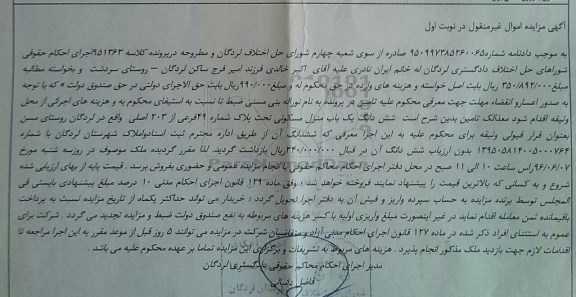 آگهی مزایده اموال غیرمنقول در نوبت اول
به موجب دادنامه شماره ۹۵۰۹۹۷۳۸۵۲۶۰۰۶۵ صادره از سوی شعبه چهارم شورای حل اختلاف لردگان و مطروحه درپرونده کلاسه ۹۵۱۳۶۳ اجرای احکام حقوقی
شوراهای حل اختلاف دادگستری لردگان له خانم ایران نادری علیه آقای اکبر خالدی فرزند امیر فرج ساکن لردگان – روستای سردشت و بخواسته مطالبه
مبلغ ۳۵۰/۸۹۲/۰۰۰ ریال بابت اصل خواسته و هزینه های وارده در حق محکوم له و مبلغ ۹۹۰/۰۰۰ ریال بابت حق الاجرای دولتی در حق صندوق دولت » که با توجه
به صدور اعساریه و انقضاء مهلت جهت معرفی محکوم علیه در پرونده به نام نورالله بنی مسنی ضبط تا نسبت به استیفای محکوم به و هزینه های اجرائی از محل
وثیقه اقدام شود معذالک تامین بدین شرح است شش دانگ یک باب منزل مسکونی تحت پلاک شماره ۴۹ فرعی از ۲۰۳ اصلی واقع در لردگان روستای مسن
بعنوان قرار قبولی وثیقه برای محکوم علیه به این اجرا معرفی که ششدانگ آن از طریق اداره محترم ثبت اسنادواملاک شهرستان لردگان با شماره
۱۳۹۵۰۵۸۱۴۰۰۵۰۰۰۷۶۴ بدون ارزیاب شش دانگ آن در قبال ۳۴۰/۰۰۰/۰۰۰ ریال بازداشت گردید. لذا مقرر گردیده ملک موصوف در روزسه شنبه مورخ
۹۶/۰۶/۰۷ راس ساعت ۱۰ الی ۱۱ صبح در محل دفتر اجرای احکام محاکم حقوقی با انجام مزایده عمومی و حضوری بفروش برسد. قیمت پایه از بهای ارزیابی شده
شروع و به کسانی که بالاترین قیمت را پیشنهاد نمایند فروخته خواهد شد ؛ وفق ماده ۱۲۹ قانون اجرای احکام مدنی ۱۰ درصد مبلغ پیشنهادی بایستی فی
المجلس توسط برنده مزایده به حساب سپرده واریز و فیش آن به دفتر اجرا تحویل گردد ؛ خریدار می تواند حداکثر یکماه از تاریخ مزایده نسبت به پرداخت
باقیمانده ثمن معامله اقدام نماید در غیر اینصورت مبلغ واریزی اولیه با کسر هزینه های مربوطه به نفع صندوق دولت ضبط و مزایده تجدید می گردد . شرکت برای
عموم به استثنای افراد ذکر شده در ماده ۱۲۷ قانون اجرای احکام مدنی آزاد و متقاضیان شرکت در مزایده می توانند ۵ روز قبل از موعد مقرر به این اجرا مراجعه تا
اقدامات لازم جهت بازدید ملک مذکور انجام پذیرد . هزینه های مربوط به تشریفات و برگزاری این مزایده تماما بر عهده محکوم علیه می باشد .
مدیر اجرای احکام محاکم حقوقی دادگستری لردگان
فاضل